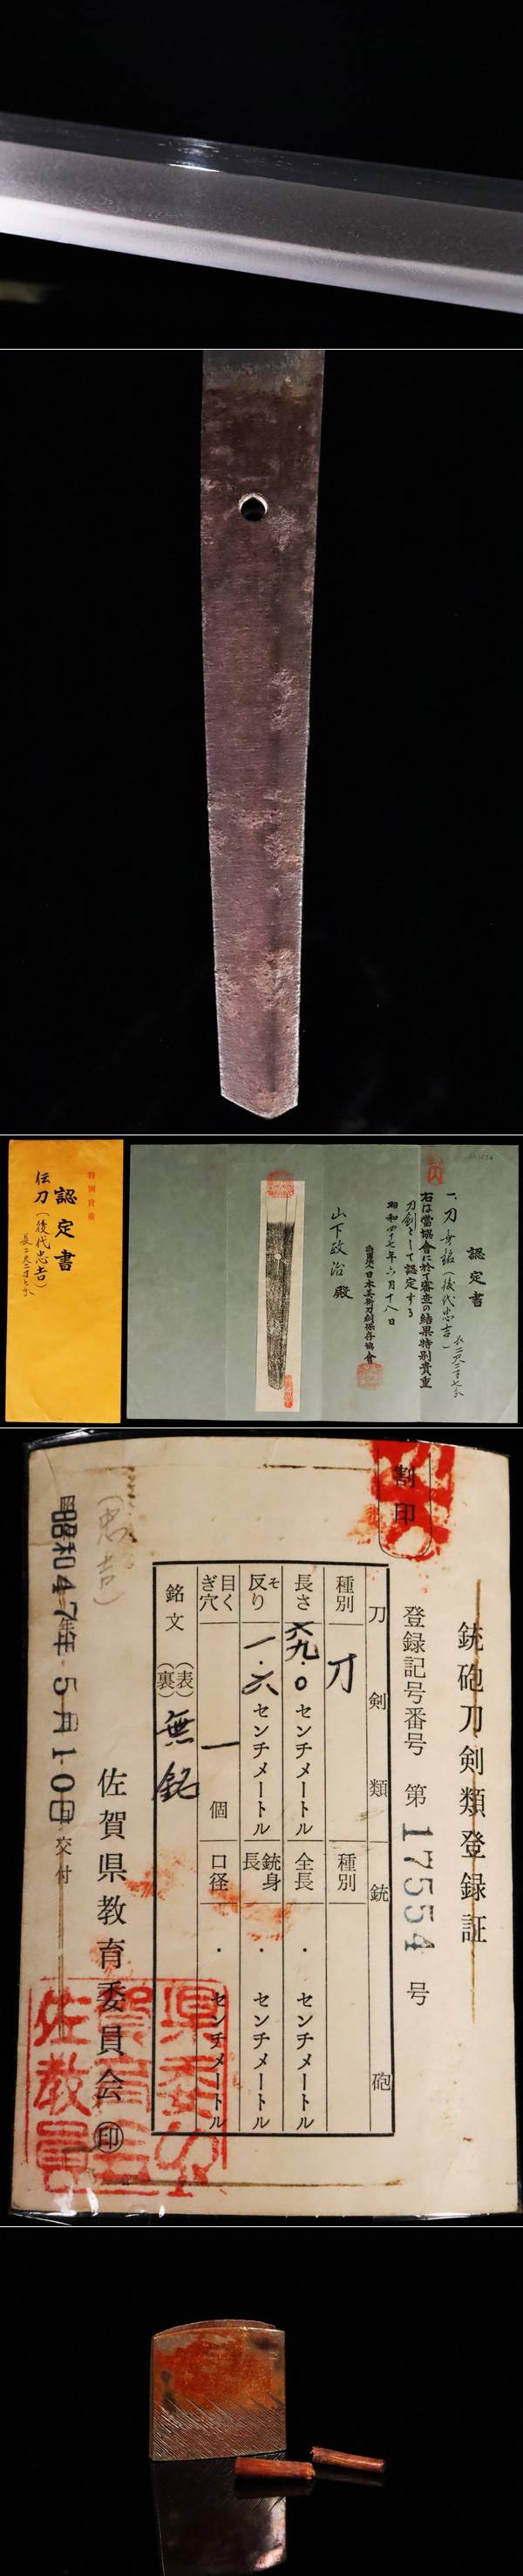 特別貴重
認定書
伝
刀(後代忠吉)
長二尺二寸七分
認定書
一、刀 無銘(後代忠吉)
長二尺二寸七分
右は當協會に於て審査の結果特別貴重
刀剣として認定する
昭和四十七年六月十八日
財団法人日本美術刀剣保存協會
山下政治殿
割印
銃砲刀剣類登録証
登録記号番号 第 17554 号
刀剣類
銃砲
種別 刀
種別
長さ 六九.0 センチメートル
全長 . センチメートル
反り そ 一.六 センチメートル
銃身長 . センチメートル
目くぎ穴 一 個
口径 . センチメートル
銘文 (表)(裏) 無銘
(忠吉)
佐賀県教育委員会 印
昭和47年5月10日交付